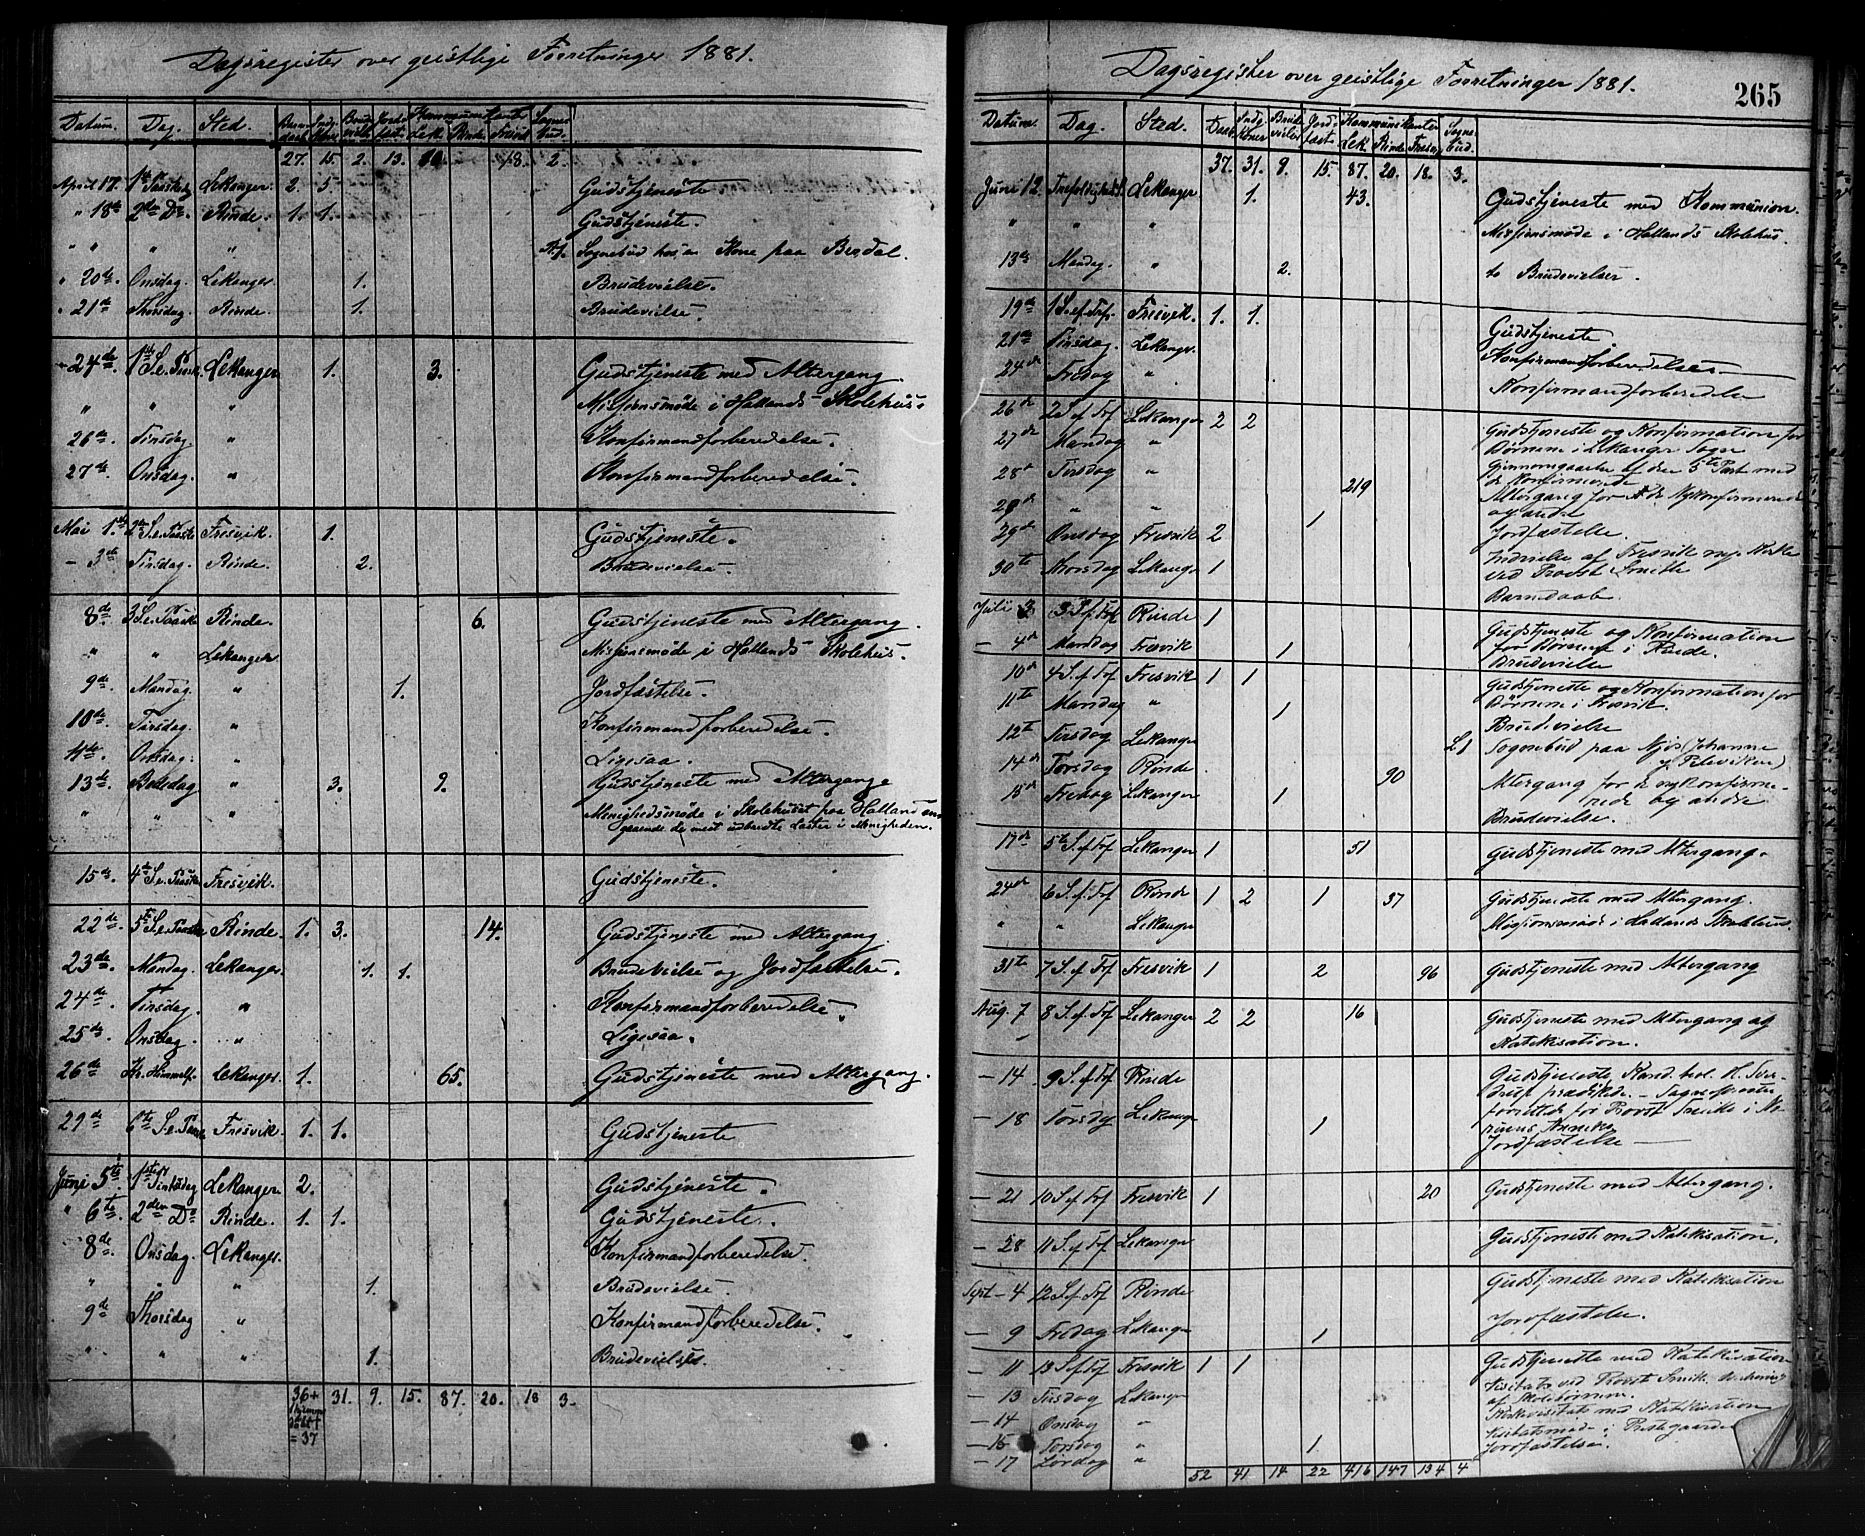 Dagsregister over geistlige Forretninger 1881.
Datum. Dag. Sted. Lek. Rinde
27. 15. 2. 13. 18. 2.
April 17. 1ste Paaskedg Lekanger. 2. 5. Gudstjeneste
" 18de 2den Do Rinde. 1. 1. Gudstjeneste.
" " " " Sognebud hos en Kone paa
" 20de. Onsdag. Lekanger 1. Brudevielse.
" 21de Thorsdag Rinde. 1. Brudevielse.
24de. 1ste S. e. Paask. Lekanger 1. 3. Gudstjeneste med Altergang.
" " " Missionsmøde i Hallands Skolehus.
26de. Tirsdag. " Konfirmandforberedelse.
27de Onsdag. " Konfirmandforberedelse.
Mai 1ste 2den S. e. Paaske Fresvik. 1. Gudstjeneste.
— 3de Tirsdag. Rinde. 2. Brudevielse.
8de. 3. S. e. Paaske Rinde. 6. Gudstjeneste med Altergang.
" " Lekanger Missionsmøde i Hallands Skolehus.
9de. Mandag. " 1. Jordfæstelse.
10de. Tirsdag. " Konfirmandforberedelse.
11de. Onsdag. " Ligesaa.
13de Bededag " 3. 9. Gudstjeneste med Altergang
" " " Menighedsmøde i Skolehuset paa Halland an-
gaaende de mest udbredte Laster i Menigheden.
15de. 4de S. e. Paaske Fresvik. Gudstjeneste.
22de 5te S. e. Paaske Rinde. 1. 3. 14. Gudstjeneste med Altergang.
23de. Mandag. Lekanger. 1. 1. Brudevielse og Jordfæstelse.
24de. Tirsdag. " Konfirmandforberedelse.
25de Onsdag. " Ligesaa.
26de Kr. Himmelf. Lekanger. 1. 65. Gudstjeneste med Altergang.
29de 6te S. e. Paask. Fresvik. 1. 1. Gudstjeneste
Juni 5te. 1ste Pintsedag Lekanger 2. Gudstjeneste.
" 6te. 2den Do Rinde. 1. 1. Gudstjeneste.
8de. Onsdag. Lekanger. Konfirmandforberedelse.
" " " 1. Brudevielse.
9de Thorsdag " Konfirmandforberedelse.
" " " 1. Brudevielse.
36+ 31. 9. 15. 87. 20. 18 3.
= 37
Dagsregister over geistlige Forretninger 1881.
265
Datum. Dag. Sted. Daab Kommunikanter
Lek. Rinde Fresvig
37. 31. 9. 15. 87. 20. 18. 3.
Juni 12. Trefoldighedsf. Lekanger. 1. 43. Gudstjeneste med Kommunion.
" " " Missionsmøde i Hallands Skolehus.
13de Mandag. " 2. to Brudevielser.
19de 1 S. ef. Trf. Fresvik. 1. 1. Gudstjeneste.
21de Tirsdag. Lekanger. Konfirmandforberedelse.
24de Fredag " Konfirmandforberedelse
26de 2 S. ef Trf Lekanger 2 2 Gudstjeneste og Konfirmation for
Børnene i Lekanger Sogn
27de Mandag "
28de Tirsdag " 219 Altergang for de Nykonfirmerede
og andre
" " 1 Jordfæstelse.
29de Onsdag Fresvik 2 Indvielse af Fresvik nye Kirke
ved Provst Smitt
30te Torsdag Lekanger 1 Barnedaab.
Juli 3 3 S. ef Trf Rinde 1 Gudstjeneste og Konfirmation
for Børnene i Rinde.
— 4de Mandag Fresvik 1 Brudevielse
10de 4 S. ef Trf Fresvik 1 1 Gudstjeneste og Konfirmation for
Børnene i Fresvik.
11te Mandag " 1 Brudevielse
12te Tirsdag Lekanger L1 Sognebud paa Njøs (Johanne
14de Torsdag Rinde 90 Altergang for nykonfirme-
rede og andre
15de Fredag Lekanger 1 Brudevielse.
17de 5te S. ef Trf Lekanger 1 51 Gudstjeneste med Altergang.
24de 6 S. ef Trf Rinde 1 2 1 37 Gudstjeneste med Altergang.
" " Lekanger Missionsmøde i Hallands Skolehus.
31te 7 S. ef Trf Fresvik 1 2 96 Gudstjeneste med Altergang
Aug. 7 8 S. ef Trf Lekanger 2 2 16 Gudstjeneste med Altergang og
Katekisation.
— 14 9 S. ef Trf Rinde Gudstjeneste Kand. teol. H. Sver-
drup prædikede. — Sognepræsten
forrettede for Provst Smitt i
— 18 Torsdag Lekanger 1 Jordfæstelse —
— 21 10 S. ef Trf Fresvik 1 20 Gudstjeneste med Altergang.
— 28 11 S. ef Trf Lekanger Gudstjeneste med Katekisation.
Sept — 4 12 S. ef Trf Rinde Gudstjeneste med Katekisation
— 9 Fredag Lekanger 1 Jordfæstelse.
— 11 13 S. ef Trf Fresvik 1 1 Gudstjeneste med Katekisation
— 13 Tirsdag Lekanger Visitats ved Provst Smitt
af Skolebørnene.
— 14 Onsdag " Kirkevisitats med Katekisation
— 15 Torsdag " 1. Visitatsmøde i Prestegaarden
— 17 Lørdag " Jordfæstelse.
52 41 14 22 416 147 134 4